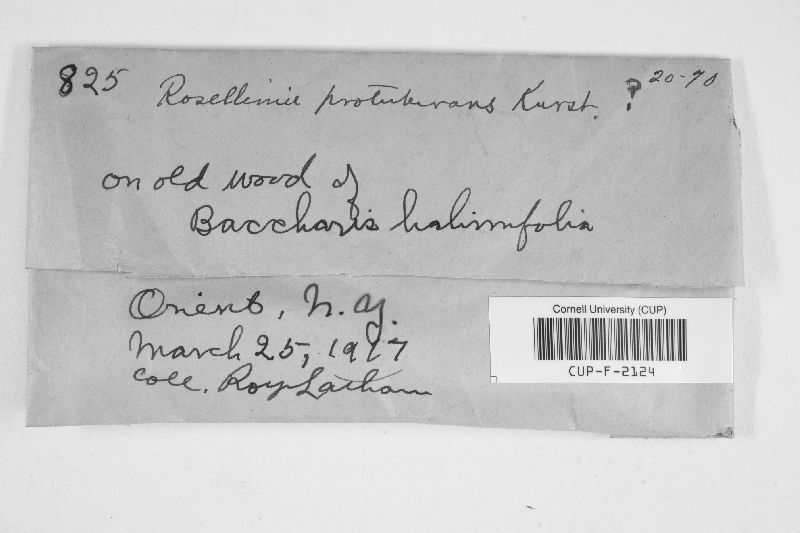 825 Rosellinia protuberans Karst. ? 20-70
on old wood of
Baccharis halimifolia
Orient, N.Y.
March 25, 1917
Coll. Roy Latham
Cornell University (CUP)
CUP-F-2124